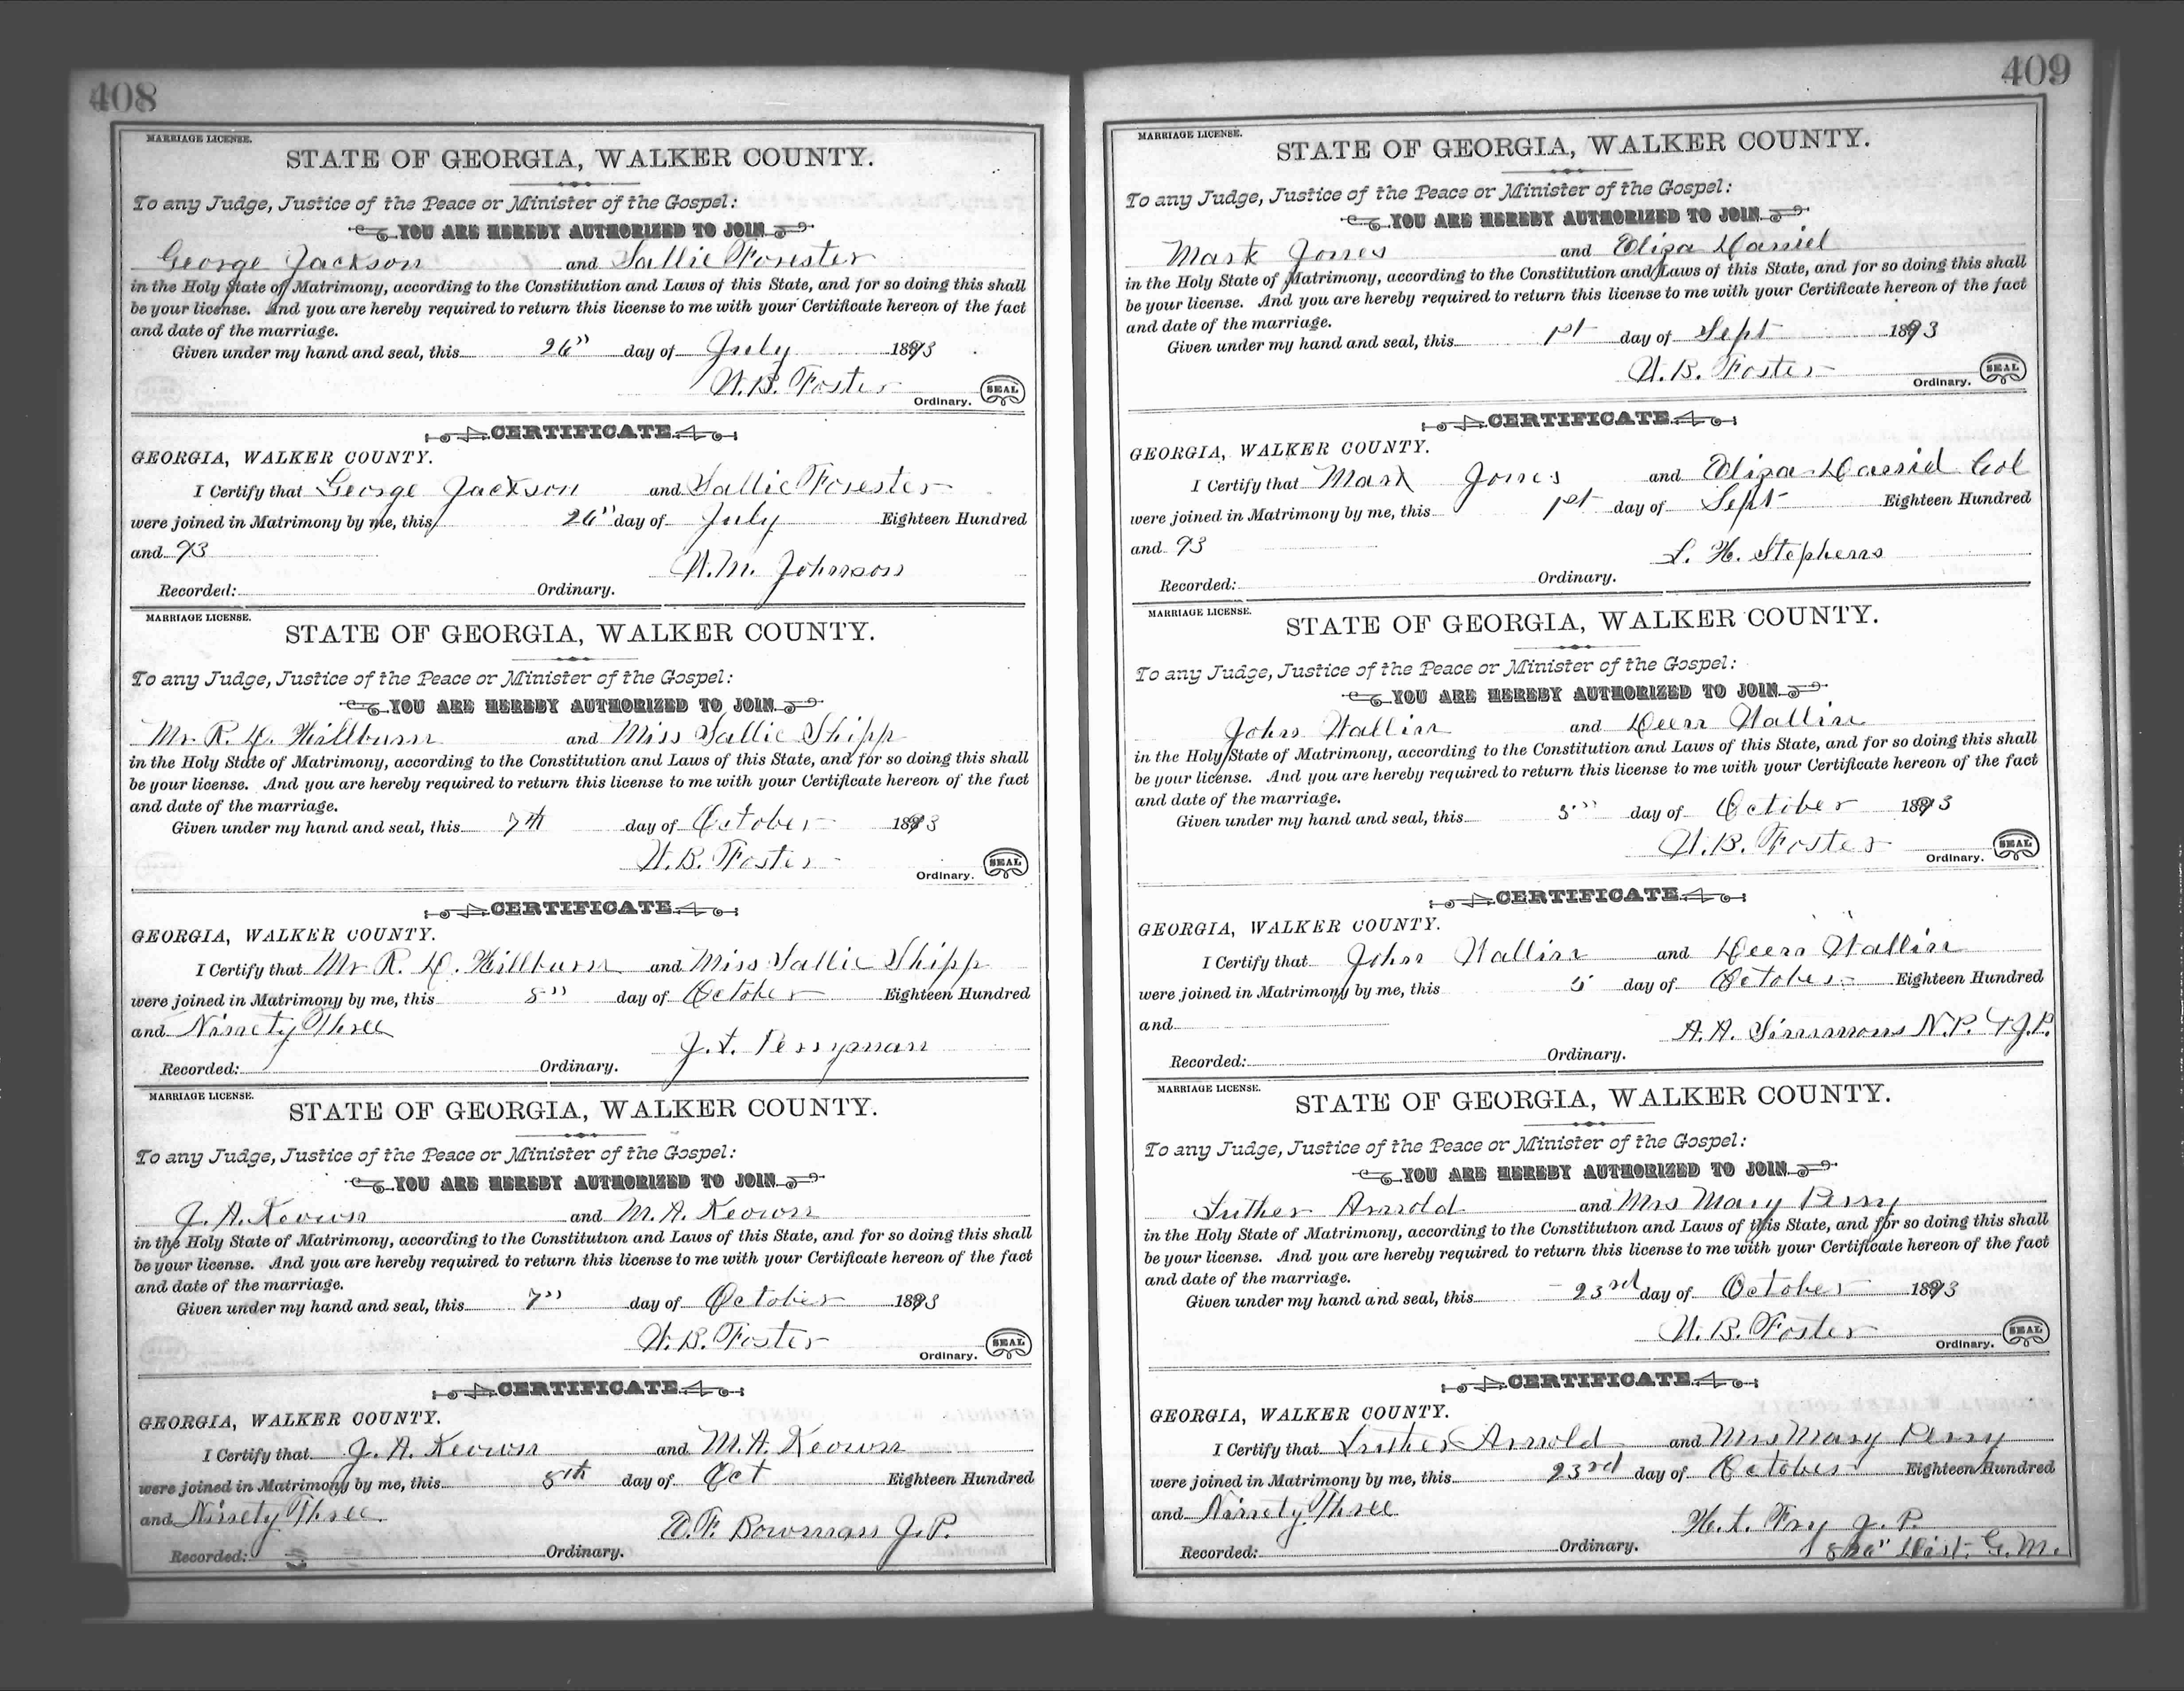 408
MARRIAGE LICENSE.
STATE OF GEORGIA, WALKER COUNTY.
To any Judge, Justice of the Peace or Minister of the Gospel:
YOU ARE HEREBY AUTHORIZED TO JOIN
George Jackson and Sallie Forester
in the Holy State of Matrimony, according to the Constitution and Laws of this State, and for so doing this shall
be your license. And you are hereby required to return this license to me with your Certificate hereon of the fact
and date of the marriage.
Given under my hand and seal, this 26" day of July 1893
W. B. Foster
Ordinary. SEAL
CERTIFICATE
GEORGIA, WALKER COUNTY.
I Certify that George Jackson and Sallie Forester
were joined in Matrimony by me, this 26" day of July Eighteen Hundred
and 93
W. M. Johnson
Recorded: Ordinary.
MARRIAGE LICENSE.
STATE OF GEORGIA, WALKER COUNTY.
To any Judge, Justice of the Peace or Minister of the Gospel:
YOU ARE HEREBY AUTHORIZED TO JOIN
Mr. R. D. Hillburn and Miss Sallie Shipp
in the Holy State of Matrimony, according to the Constitution and Laws of this State, and for so doing this shall
be your license. And you are hereby required to return this license to me with your Certificate hereon of the fact
and date of the marriage.
Given under my hand and seal, this 7th day of October 1893
W. B. Foster
Ordinary. SEAL
CERTIFICATE
GEORGIA, WALKER COUNTY.
I Certify that Mr R. D. Hillburn and Miss Sallie Shipp
were joined in Matrimony by me, this 8" day of October Eighteen Hundred
and Ninety Three
J. T. Perryman
Recorded: Ordinary.
MARRIAGE LICENSE.
STATE OF GEORGIA, WALKER COUNTY.
To any Judge, Justice of the Peace or Minister of the Gospel:
YOU ARE HEREBY AUTHORIZED TO JOIN
J. A. Keown and M. A. Keown
in the Holy State of Matrimony, according to the Constitution and Laws of this State, and for so doing this shall
be your license. And you are hereby required to return this license to me with your Certificate hereon of the fact
and date of the marriage.
Given under my hand and seal, this 7" day of October 1893
W. B. Foster
Ordinary. SEAL
CERTIFICATE
GEORGIA, WALKER COUNTY.
I Certify that J. A. Keown and M. A. Keown
were joined in Matrimony by me, this 8th day of Oct Eighteen Hundred
and Ninety Three
E. F. Bowman J. P.
Recorded: Ordinary.
409
MARRIAGE LICENSE.
STATE OF GEORGIA, WALKER COUNTY.
To any Judge, Justice of the Peace or Minister of the Gospel:
YOU ARE HEREBY AUTHORIZED TO JOIN
Mark Jones and Eliza Daniel
in the Holy State of Matrimony, according to the Constitution and Laws of this State, and for so doing this shall
be your license. And you are hereby required to return this license to me with your Certificate hereon of the fact
and date of the marriage.
Given under my hand and seal, this 1st day of Sept 1893
W. B. Foster
Ordinary. SEAL
CERTIFICATE
GEORGIA, WALKER COUNTY.
I Certify that Mark Jones and Eliza Daniel Col
were joined in Matrimony by me, this 1st day of Sept Eighteen Hundred
and 93
L. H. Stephens
Recorded: Ordinary.
MARRIAGE LICENSE.
STATE OF GEORGIA, WALKER COUNTY.
To any Judge, Justice of the Peace or Minister of the Gospel:
YOU ARE HEREBY AUTHORIZED TO JOIN
John Wallin and Deen Wallin
in the Holy State of Matrimony, according to the Constitution and Laws of this State, and for so doing this shall
be your license. And you are hereby required to return this license to me with your Certificate hereon of the fact
and date of the marriage.
Given under my hand and seal, this 5" day of October 1893
W. B. Foster
Ordinary. SEAL
CERTIFICATE
GEORGIA, WALKER COUNTY.
I Certify that John Wallin and Deen Wallin
were joined in Matrimony by me, this 5 day of October Eighteen Hundred
and
A. A. Simmons N. P. & J. P.
Recorded: Ordinary.
MARRIAGE LICENSE.
STATE OF GEORGIA, WALKER COUNTY.
To any Judge, Justice of the Peace or Minister of the Gospel:
YOU ARE HEREBY AUTHORIZED TO JOIN
Luther Arnold and Mrs Mary Perry
in the Holy State of Matrimony, according to the Constitution and Laws of this State, and for so doing this shall
be your license. And you are hereby required to return this license to me with your Certificate hereon of the fact
and date of the marriage.
Given under my hand and seal, this 23rd day of October 1893
W. B. Foster
Ordinary. SEAL
CERTIFICATE
GEORGIA, WALKER COUNTY.
I Certify that Luther Arnold and Mrs Mary Perry
were joined in Matrimony by me, this 23rd day of October Eighteen Hundred
and Ninety Three
H. T. Fry J. P.
Recorded: Ordinary. Dist. G. M.